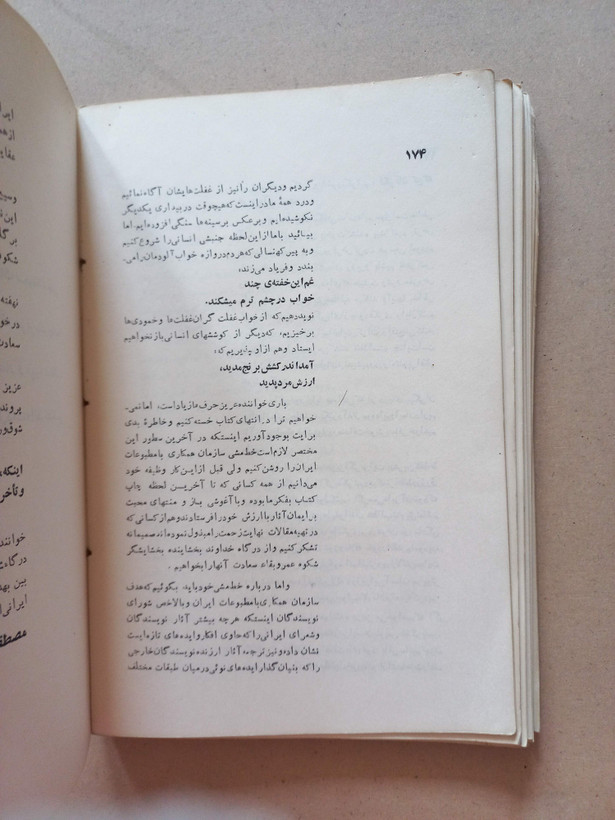 ۱۷۴
گردیم ودیگران رانیز از غفلت‌هایشان آگاه نمائیم
ودرد همهٔ مادراینست که هیچوقت دربیداری یکدیگر
نکوشیده‌ایم وبرعکس برسینه‌ها سنگی افزوده‌ایم. اما
بیائید باماازاین لحظه جنبشی انسانی را شروع کنیم
وبه پیرکهنسالی که هردم دروازه خواب آلودمان رامی‌
بندد وفریاد می‌زند،
غم این خفته‌ی چند
خواب درچشم ترم میشکند.
نویددهیم که ازخواب غفلت گران غفلت‌ها وخمودی‌ها
برخیزیم، که دیگر از کوششهای انسانی بازنخواهیم
ایستاد وهم ازاو بپذیریم که،
آمداندرکشش برنج مدید،
ارزش مردپدید
باری خواننده عزیز حرف مازیاداست، امانمی‌
خواهیم ترا درانتهای کتاب خسته کنیم وخاطرهٔ بدی
برایت بوجودآوریم اینستکه در آخرین سطور این
مختصر لازم است خط مشی سازمان همکاری بامطبوعات
ایران را روشن کنیم ولی قبل ازاین کار وظیفه خود
می‌دانیم از همه کسانی که تا آخریـن لحظه چاپ
کتاب بفکرمابوده وباآغوشی باز و منتهای محبت
برایمان آثارباارزش خودرافرستادندوهم ازکسانی که
درتهیه مقالات نهایت زحمت رامبذول نموده‌اند صمیمانه
تشکرکنیم واز درگاه خداوند بخشاینده بخشایشگر
شکوه عمروبقاء سعادت آنهارابخواهیم.
واما درباره خط مشی خودباید بگوئیم که هدف
سازمان همکاری بامطبوعات ایران وبالاخص شورای
نویسندگان اینستکه هرچه بیشتر آثار نویسندگان
وشعرای ایرانی راکه حاوی افکاروایده‌های تازه‌ایست
نشان داده ونیزترجمه آثار ارزنده نویسندگان خارجی
راکه بنیان گذار ایده‌های نوئی درمیان طبقات مختلف